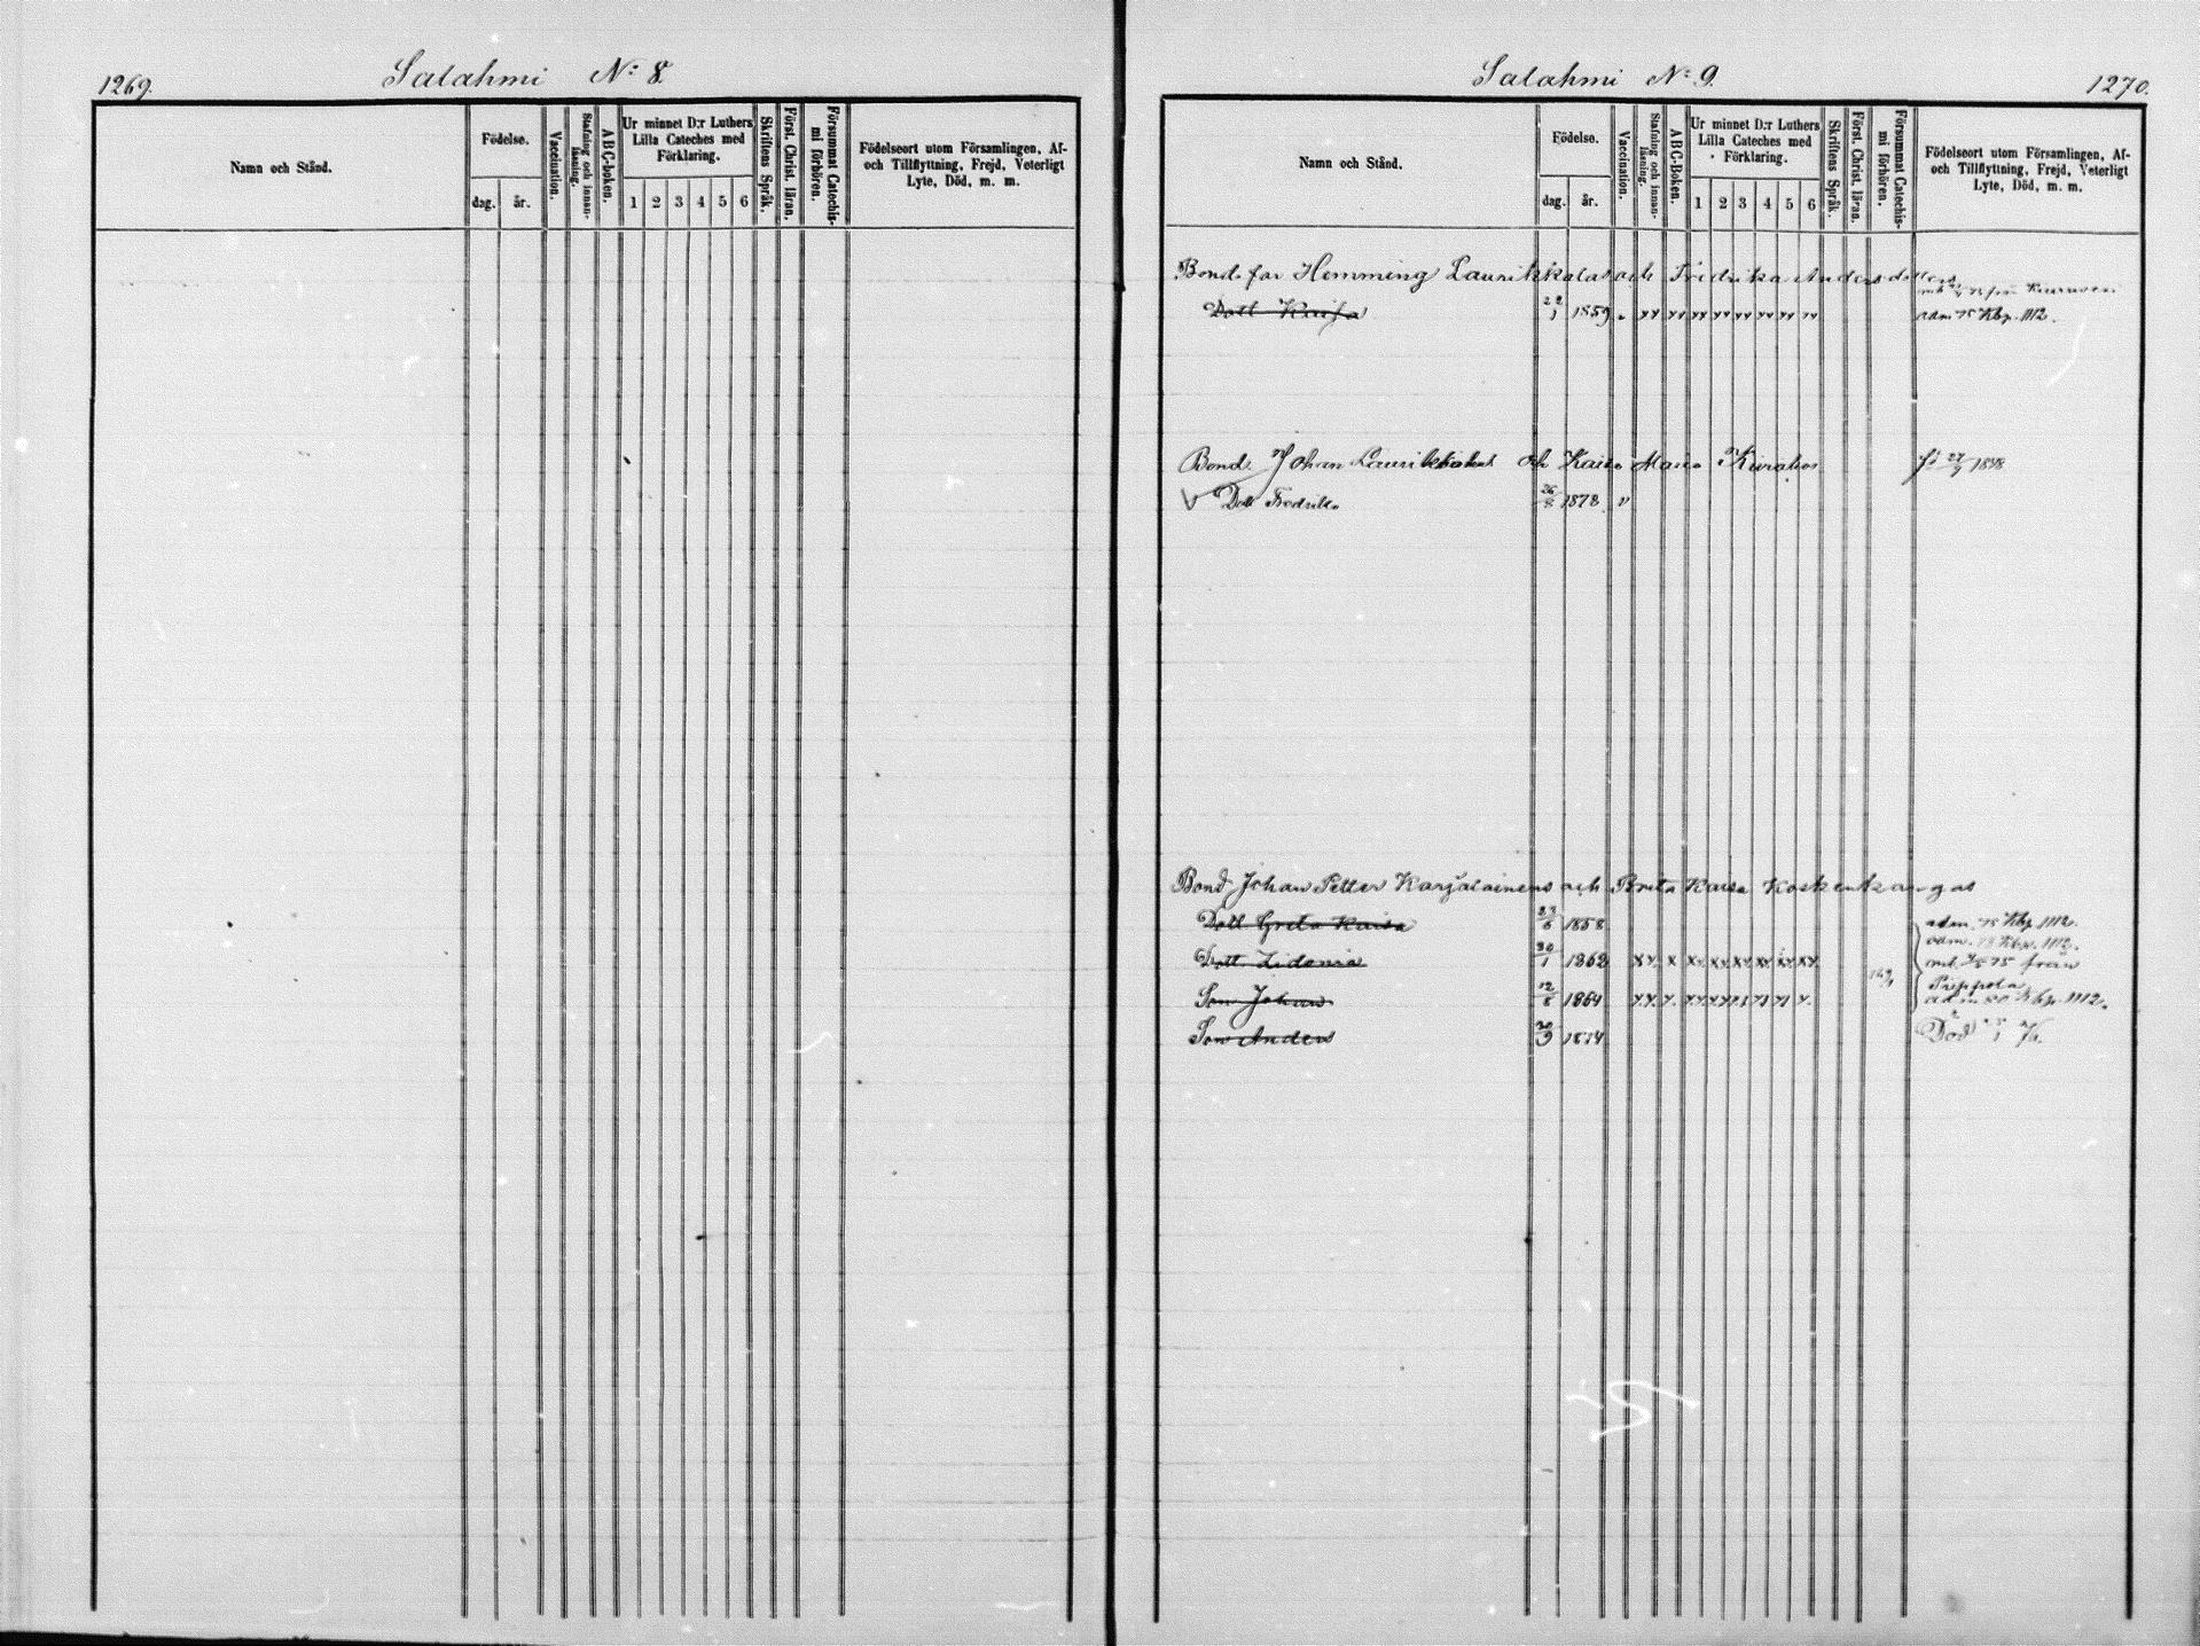 1269.
Salahmi No: 8.
Namn och Stånd.
Födelse.
dag.
år.
Vaccination.
Stafning och innan-
läsning.
ABC-boken.
Ur minnet D:r Luthers
Lilla Cateches med
Förklaring.
1 2 3 4 5 6
Skriftens Språk.
Först. Christ. läran.
Försummat Catechis-
mi förhören.
Födelseort utom Församlingen, Af-
och Tillflyttning, Frejd, Veterligt
Lyte, Död, m. m.
Salahmi No: 9.
1270.
Namn och Stånd.
Födelse.
dag.
år.
Vaccination.
Stafning och innan-
läsning.
ABC-Boken.
Ur minnet D:r Luthers
Lilla Cateches med
Förklaring.
1 2 3 4 5 6
Skriftens Språk.
Först. Christ. läran.
Försummat Catechis-
mi förhören.
Födelseort utom Församlingen, Af-
och Tillflyttning, Frejd, Veterligt
Lyte, Död, m. m.
Bond. far Hemming Laurikkalas och Fredrika Andersdotters
Dott Kaisa 22/1 1859 adm 75 Kbp. 1112.
Bond. Johan Laurikkalas och Kaisa Maria
Dott Fredrika 26/8 1878 "
Bond Johan Petter Karjalainens och Brita Kaisa Koskenkangas
Dott Greta Kaisa 1858 adm. 75 Kbp. 1112.
adm. Kbp. 1112.
Dott. Zidonia 30/1 1862 från
Pippola
Son Johan 12/8 1864 Kbp. 1112.
Son Anders 1874 Död